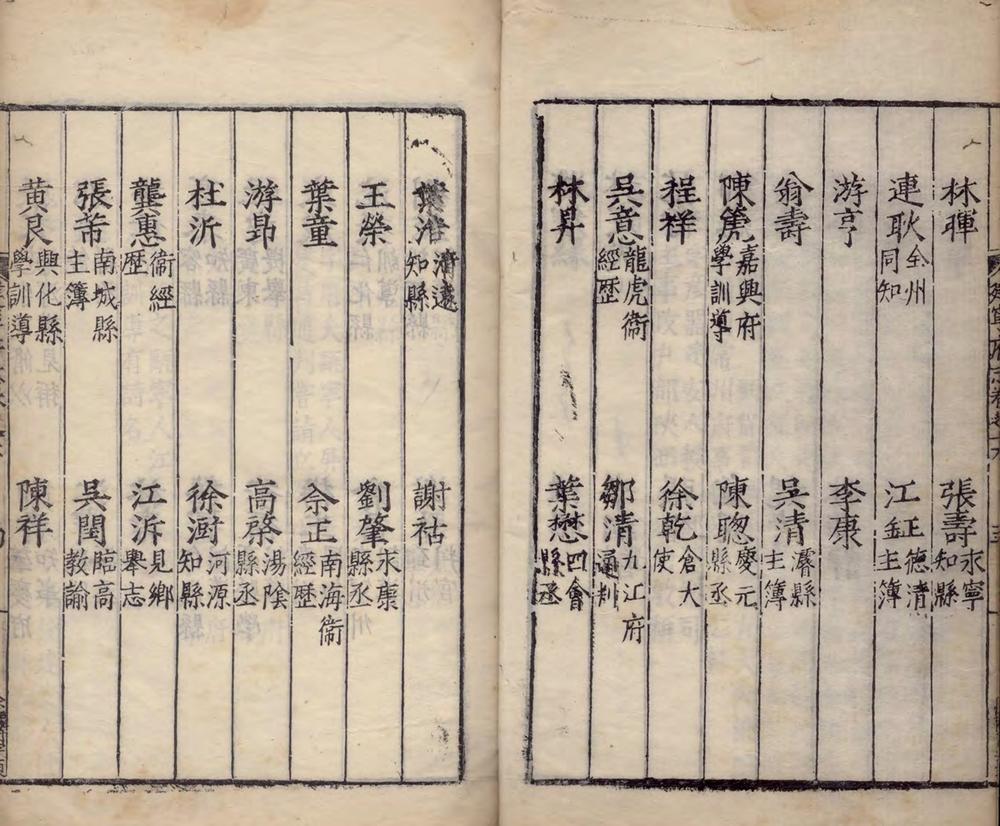 林暉 張壽永寧知縣
連耿全州同知 江鉦德清主簿
游亨 李康
翁壽 吳清濬縣主簿
陳㒞嘉興府學訓導 陳聰慶元縣丞
程祥 徐乾倉大使
吳意龍虎衛經歷 鄒清九江府通判
林昇 葉懋四會縣丞
清遠知縣 謝祜
王榮 劉肇永康縣丞
葉童 余正南海衛經歷
游昻 高棨湯陰縣丞
杜沂 徐澍河源知縣
龔惠衞經歷 江泝見鄉舉志
張芾南城縣主簿 吳閏臨高教諭
黃艮興化縣學訓導 陳祥